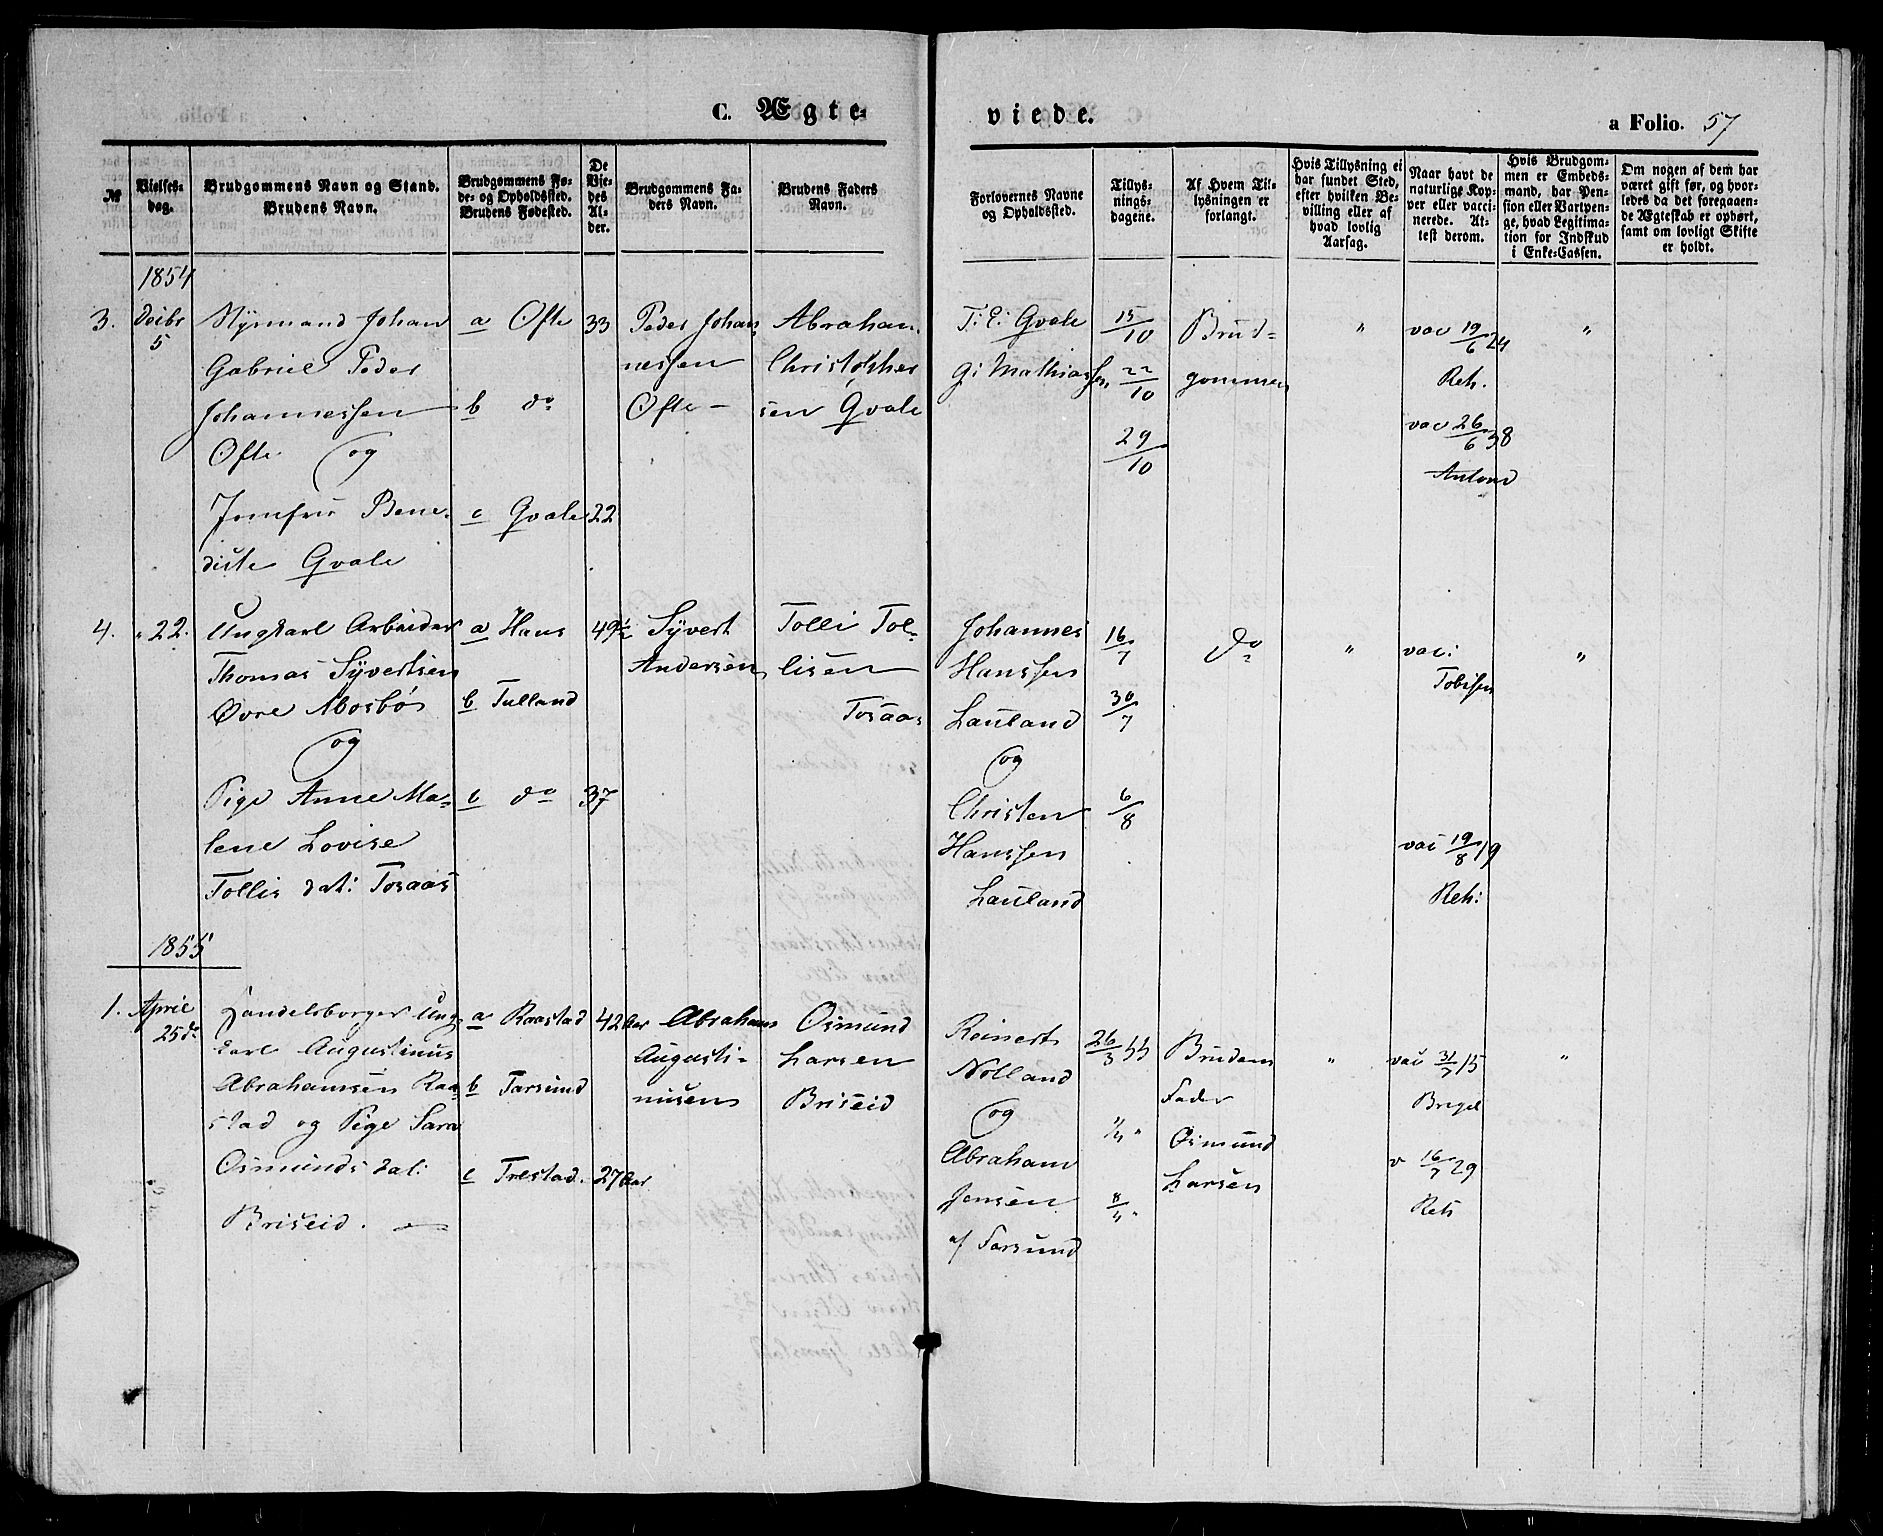 C. Ægte-
viede.
a Folio. 57
№
Vielses-
dag.
Brudgommens Navn og Stand.
Brudens Navn.
Brudgommens Fø-
de- og Opholdssted.
Brudens Fødested.
De
Vie-
des
Al-
der.
Brudgommens Fa-
ders Navn.
Brudens Faders
Navn.
Forlovernes Navne
og Opholdssted.
Tillys-
nings-
dagene.
Af Hvem Til-
lysningen er
forlangt.
Hvis Tillysning ei
har fundet Sted,
efter hvilken Be-
villing eller af
hvad lovlig
Aarsag.
Naar havt de
naturlige Kop-
per eller vacci-
nerede. At-
test derom.
Hvis Brudgom-
men er Embeds-
mand, har Pen-
sion eller Vartpen-
ge, hvad Legitima-
tion for Indskud
i Enke-Cassen.
Om nogen af dem har
været gift før, og hvor-
ledes da det foregaaen-
de Ægteskab er ophørt,
samt om lovligt Skifte
er holdt.
1854
3.
Decbr
5
Styrmand Johan
Gabriel Peder
Johannessen
Ofte og
Jomfru Bene-
dicte Qvale
a Ofte
b do
c Qvale
33
22
Peder Johan-
nessen
Ofte
Abraham
Christopher
sen Qvale
T. E. Qvale
G. Mathiassen
15/10
22/10
29/10
Brud-
gommen
"
vac 19/6 24
Reh.
vac 26/6 38
"
4.
" 22.
Ungkarl Arbeider
Thomas Syvertsen
Øvre Mosbø
og
Pige Anne Ma-
lene Lovise
Tollis dat: Tosaas
a Haus
b Tulland
c do
49½
37
Syvert
Andersen
Tolli Tol-
lisen
Tosaas
Johannes
Hanssen
Lauland
og
Christen
Hanssen
Lauland
16/7
30/7
6/8
do
"
vac:
Tobisen
vac 19/8 19
Reh:
"
1855
1.
April
25de
Handelsborger Ung
karl Augustinus
Abrahamsen Raa-
stad og Pige Sara
Osmunds dat:
Briseid.
a Raastad
b Farsund
c Trestad.
42 Aar
27 Aar
Abraham
Augusti-
nusen
Osmund
Larsen
Briseid
Reinert
Nolland
og
Abraham
Jensen
af Farsund
26/3 55
1/4 "
8/4 "
Brudens
Fader
Osmund
Larsen
"
vac 31/7 15
v 16/7 29
Reh
"